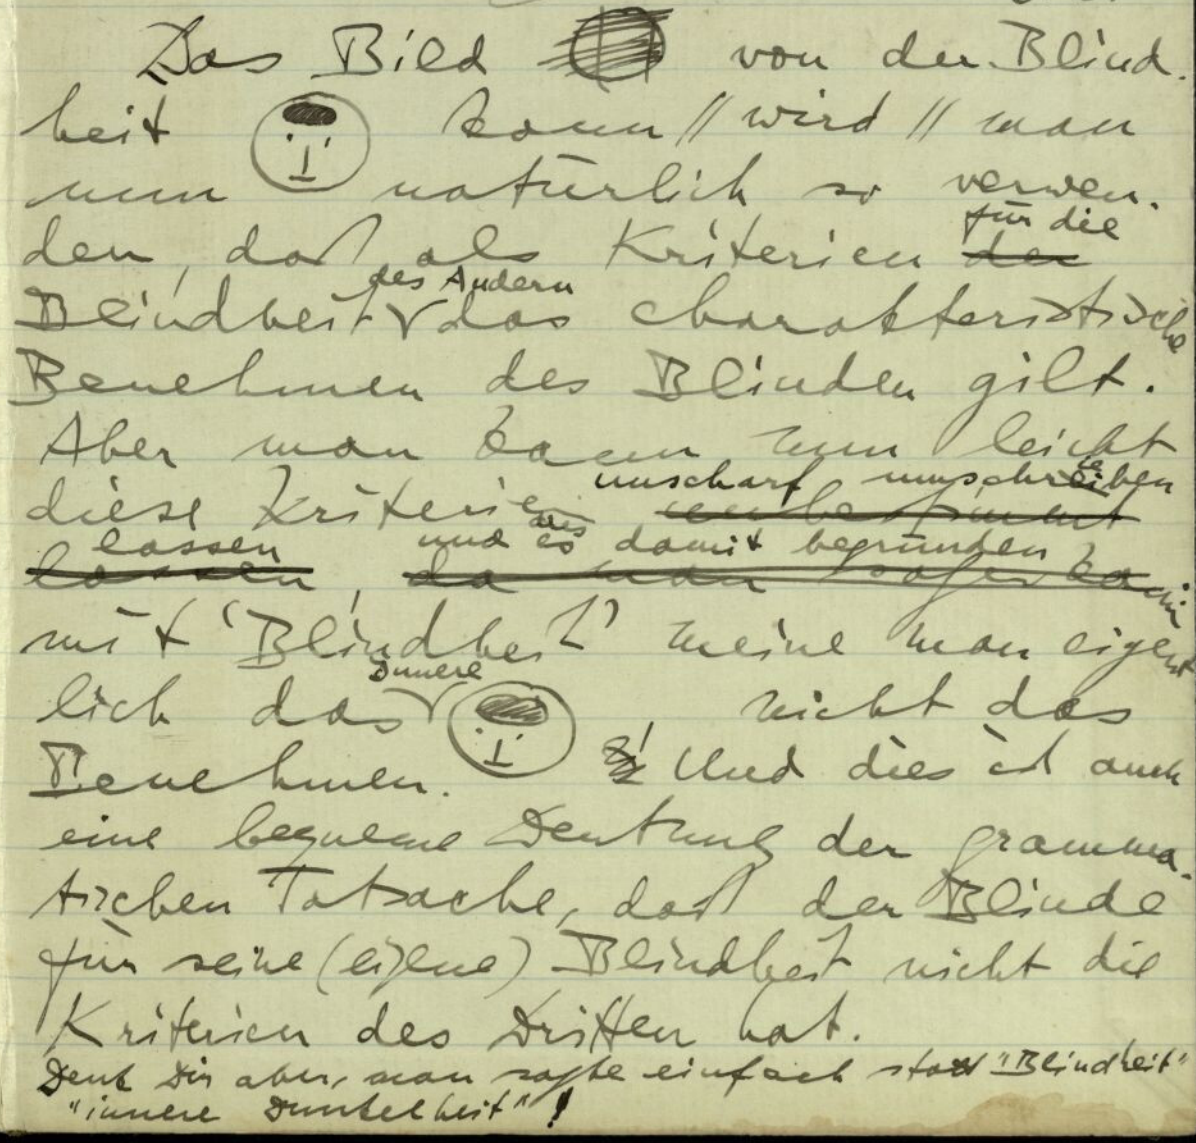 Das Bild von der Blind-
heit kann // wird // man
nun natürlich so verwen-
für die
den, daß als Kriterien der
des Andern
Blindheit das charakteristische
Benehmen des Blinden gilt.
Aber man kann nun leicht
unscharf umschreiben
diese Kriterien unbestimmt
lassen und es damit begründen
lassen, da man sagen kann
mit ‘Blindheit’ meine man eigent
innere
lich das, nicht das
Benehmen. Und dies ist auch
eine bequeme Deutung der gramma-
tischen Tatsache, daß der Blinde
für seine (eigene) Blindheit nicht die
Kriterien des Dritten hat.
Denk Dir aber, man sagte einfach statt "Blindheit"
"innere Dunkelheit"!